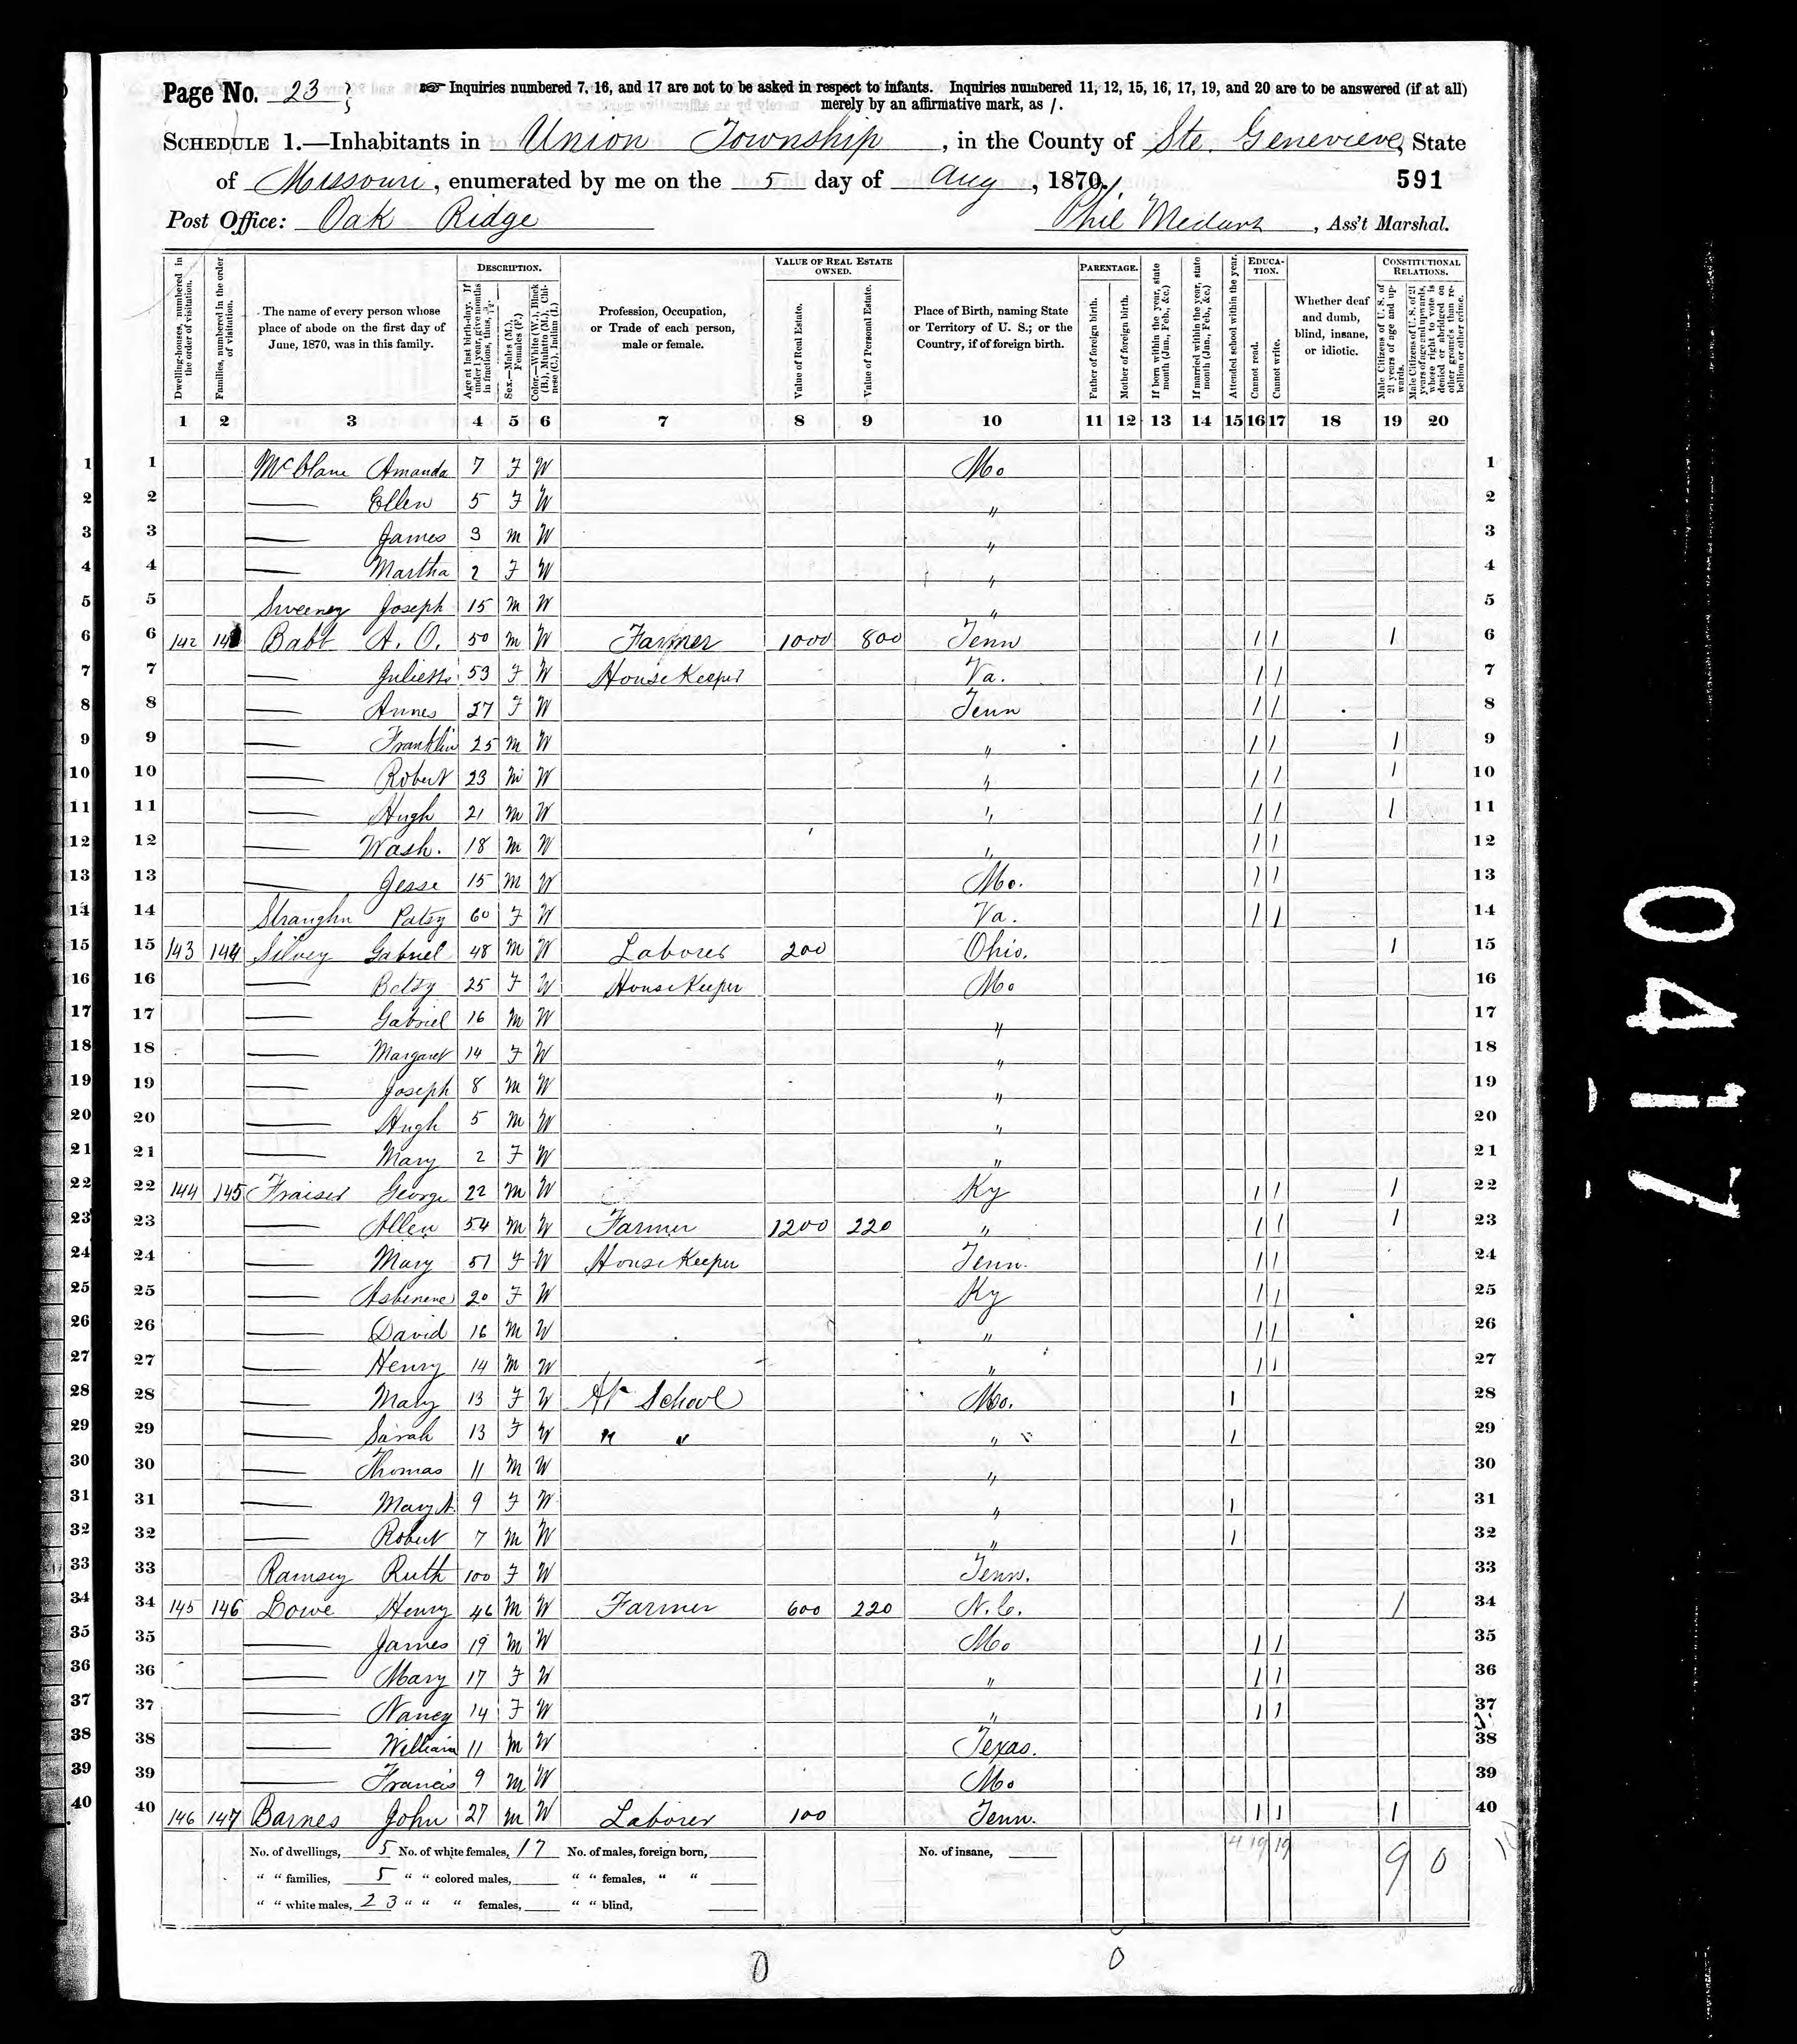 Page No. 23
☞ Inquiries numbered 7, 16, and 17 are not to be asked in respect to infants. Inquiries numbered 11, 12, 15, 16, 17, 19, and 20 are to be answered (if at all)
merely by an affirmative mark, as /.
SCHEDULE 1.—Inhabitants in Union Township, in the County of Ste. Genevieve, State
of Missouri, enumerated by me on the 5 day of Aug, 1870.
591
Post Office: Oak Ridge
Phil , Ass't Marshal.
Dwelling-houses, numbered in the order of visitation.
Families, numbered in the order of visitation.
The name of every person whose place of abode on the first day of June, 1870, was in this family.
DESCRIPTION.
Age at last birth-day. If under 1 year, give months in fractions, thus, 3/12.
Sex.—Males (M.), Females (F.)
Color.—White (W.), Black (B.), Mulatto (M.), Chinese (C.), Indian (I.)
Profession, Occupation, or Trade of each person, male or female.
VALUE OF REAL ESTATE OWNED.
Value of Real Estate.
Value of Personal Estate.
Place of Birth, naming State or Territory of U. S.; or the Country, if of foreign birth.
PARENTAGE.
Father of foreign birth.
Mother of foreign birth.
If born within the year, state month (Jan., Feb., &c.)
If married within the year, state month (Jan., Feb., &c.)
Attended school within the year.
EDUCATION.
Cannot read.
Cannot write.
Whether deaf and dumb, blind, insane, or idiotic.
CONSTITUTIONAL RELATIONS.
Male Citizens of U. S. of 21 years of age and upwards.
Male Citizens of U. S. of 21 years of age and upwards, whose right to vote is denied or abridged on other grounds than rebellion or other crime.
1 2 3 4 5 6 7 8 9 10 11 12 13 14 15 16 17 18 19 20
1 Amanda 7 F W Mo 1
2 — Ellen 5 F W " 2
3 — James 3 M W " 3
4 — Martha 2 F W " 4
5 Sweeney Joseph 15 M W " 5
6 142 Babb A. O. 50 M W Farmer 1000 800 Tenn / / / 6
7 — 53 F W House Keeper Va. / / 7
8 — 27 F W Tenn / / 8
9 — Franklin 25 M W " / / / 9
10 — Robert 23 M W " / / / 10
11 — Hugh 21 M W " / / / 11
12 — Wash. 18 M W " / / 12
13 — Jesse 15 M W Mo. / / 13
14 Straughn Patsy 60 F W Va. / / 14
15 143 144 Silvey Gabriel 48 M W Laborer 200 Ohio. / 15
16 — Betsy 25 F W House Keeper Mo 16
17 — Gabriel 16 M W " 17
18 — Margaret 14 F W " 18
19 — Joseph 8 M W " 19
20 — Hugh 5 M W " 20
21 — Mary 2 F W " 21
22 144 145 Fraiser George 22 M W Ky / / / 22
23 — Allen 54 M W Farmer 1200 220 " / / / 23
24 — Mary 51 F W House Keeper Tenn. / / 24
25 — 20 F W Ky / / 25
26 — David 16 M W " / / 26
27 — Henry 14 M W " / / 27
28 — Mary 13 F W At School Mo. / 28
29 — Sarah 13 F W " " " / 29
30 — Thomas 11 M W " 30
31 — Mary A. 9 F W " / 31
32 — Robert 7 M W " / 32
33 Ramsey Ruth 100 F W Tenn. 33
34 145 146 Lowe Henry 46 M W Farmer 600 220 N.C. / 34
35 — James 19 M W Mo / / 35
36 — Mary 17 F W " / / 36
37 — Nancy 14 F W " / / 37
38 — William 11 M W Texas. 38
39 — Francis 9 M W Mo 39
40 146 147 Barnes John 27 M W Laborer 100 Tenn. / / / 40
No. of dwellings, 5 No. of white females, 17 No. of males, foreign born, No. of insane, 4 19 19 9 0
" " families, 5 " " colored males, " " females, " "
" " white males, 23 " " " females, " " blind,
0 0
0417